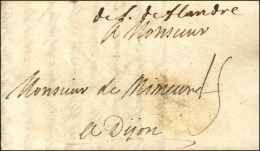 de f. de flandre
A Monsieur
Monsieur de Mimeure
a Dijon